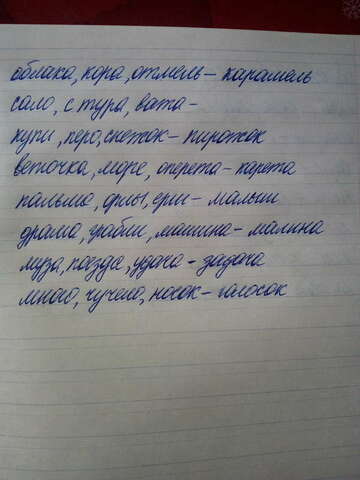 облака, кора, отмель – карамель
сало, с тура, вата –
купи, перо, снежок – пирожок
веточка, море, оперета – карета
пальма, ерши – малыши
драма, грабли, машина – малина
муза, поезда, удача - задача
много, чучело, носок – голосок